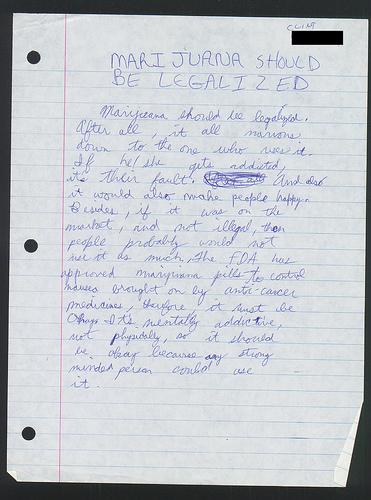 CLINT
MARIJUANA SHOULD
BE LEGALIZED
Marijuana should be legalized.
After all, it all narrows
down to the one who uses it.
If he/she gets addicted,
it's their fault. And also
it would also make people happy.
Besides, if it was on the
market, and not illegal, then
people probably would not
use it as much. The FDA has
approved marijuana pills to control
nausea brought on by anti-cancer
medicines, therefore it must be
Okay. It's mentally addictive,
not physically, so it should
be okay because any strong
minded person could use
it.